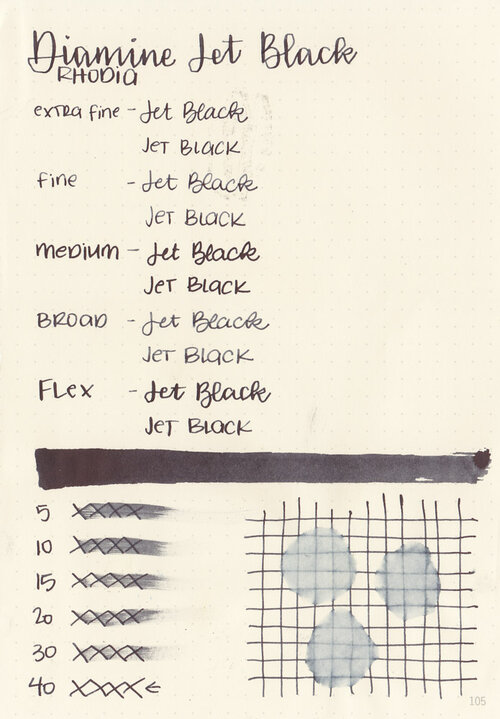 Diamine Jet Black
RHODIA
extra fine - Jet Black
Jet Black
fine - Jet Black
Jet Black
medium - Jet Black
Jet Black
BROAD - Jet Black
Jet Black
Flex - Jet Black
Jet Black
5 XXXX
10 XXXX
15 XXXX
20 XXXX
30 XXXX
40 XXXX←
105